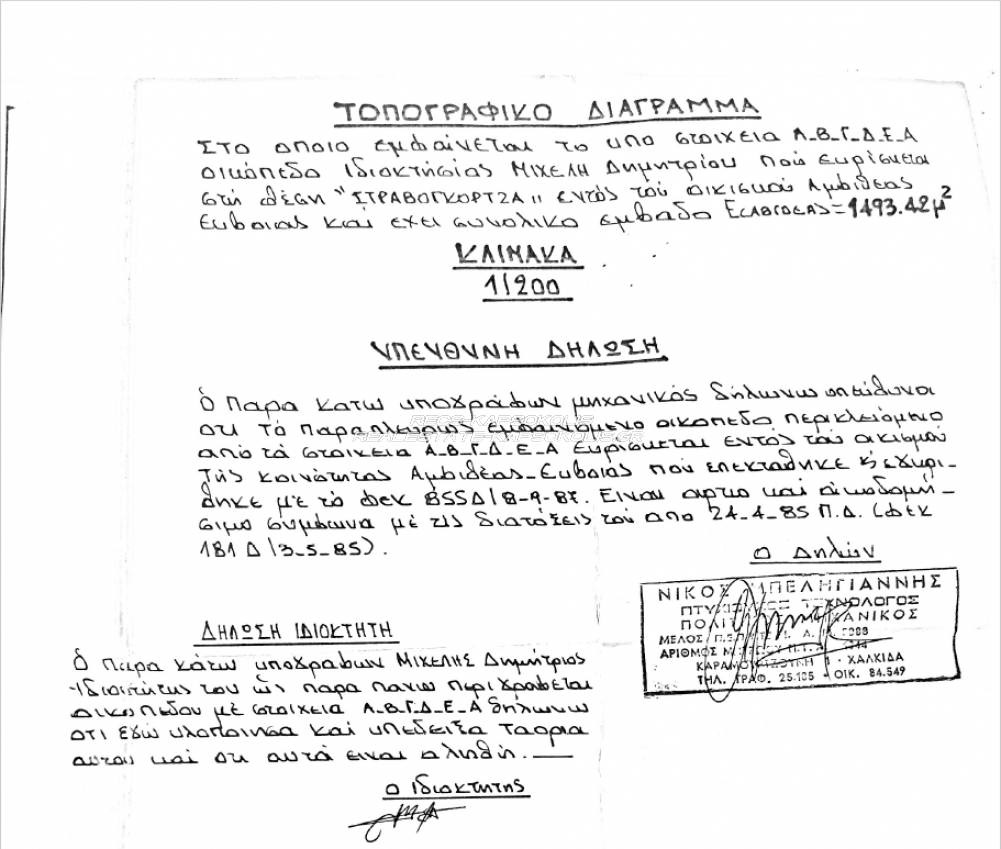 ΤΟΠΟΓΡΑΦΙΚΟ ΔΙΑΓΡΑΜΜΑ
Στο οποιο εμφαινεται το υπο στοιχεια Α-Β-Γ-Δ-Ε-Α
οικόπεδο Ιδιοκτησίας ΜΙΧΕΛΗ Δημητρίου που ευρίσκεται
στή θέση "ΣΤΡΑΒΟΓΚΟΡΤΖΑ" εντός τού οικισμού Αμφιθέας
Ευβοιας και εχει συνολικο εμβαδο Ε(ΑΒΓΔΕΑ)=1493.42μ²
ΚΛΙΜΑΚΑ
1/200
ΥΠΕΥΘΥΝΗ ΔΗΛΩΣΗ
Ὁ Παρα κατω υπογράφων μηχανικός δηλωνω υπεύθυνα
οτι τό παραπλευρως εμφαινομενο οικοπεδο περικλειόμενο
από τά στοιχεια Α-Β-Γ-Δ-Ε-Α Ευρίσκεται εντός τού οικισμού
Τής κοινότητας Αμφιθέας-Ευβοιάς που επεκτάθηκε & εγκρι-
θηκε μέ το φεκ 855Δ/8-9-87. Ειναι αρτιο και οικοδομή-
σιμο σύμφωνα μέ τις διατάξεις τού απο 24-4-85 Π.Δ. (ΦΕΚ
181 Δ/3-5-85).
ο Δηλών
ΝΙΚΟΣ ΠΕΛΗΓΙΑΝΝΗΣ
ΠΤΥΧΙΟΥΧΟΣ ΤΕΧΝΟΛΟΓΟΣ
ΠΟΛΙΤ ΧΑΝΙΚΟΣ
ΜΕΛΟΣ
ΑΡΙΘΜΟΣ
ΧΑΛΚΙΔΑ
ΤΗΛ. ΓΡΑΦ. 25.185 - ΟΙΚ. 84.549
ΔΗΛΩΣΗ ΙΔΙΟΚΤΗΤΗ
Ὁ Παρα κάτω υπογραφων ΜΙΧΕΛΗΣ Δημήτριος
Ιδιοκτήτης του ώς παρα πανω περιγραφεται
οικοπεδου μέ στοιχεια Α-Β-Γ-Δ-Ε-Α δηλωνω
οτι εγώ υλοποιησα και υπεδειξα τα ορια
αυτου και οτι αυτά ειναι αληθή.
ο Ιδιοκτητης